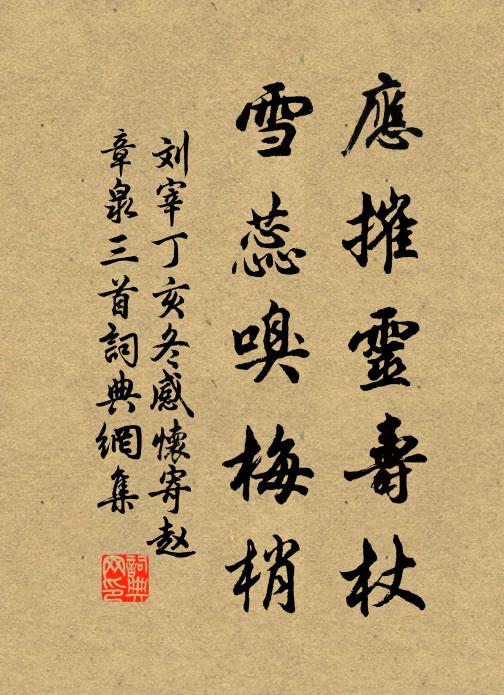 應摧靈壽杖
雪蕊嗅梅梢
刘宰丁亥冬感懷寄赵
章泉三首詞典網集
詞典
网印